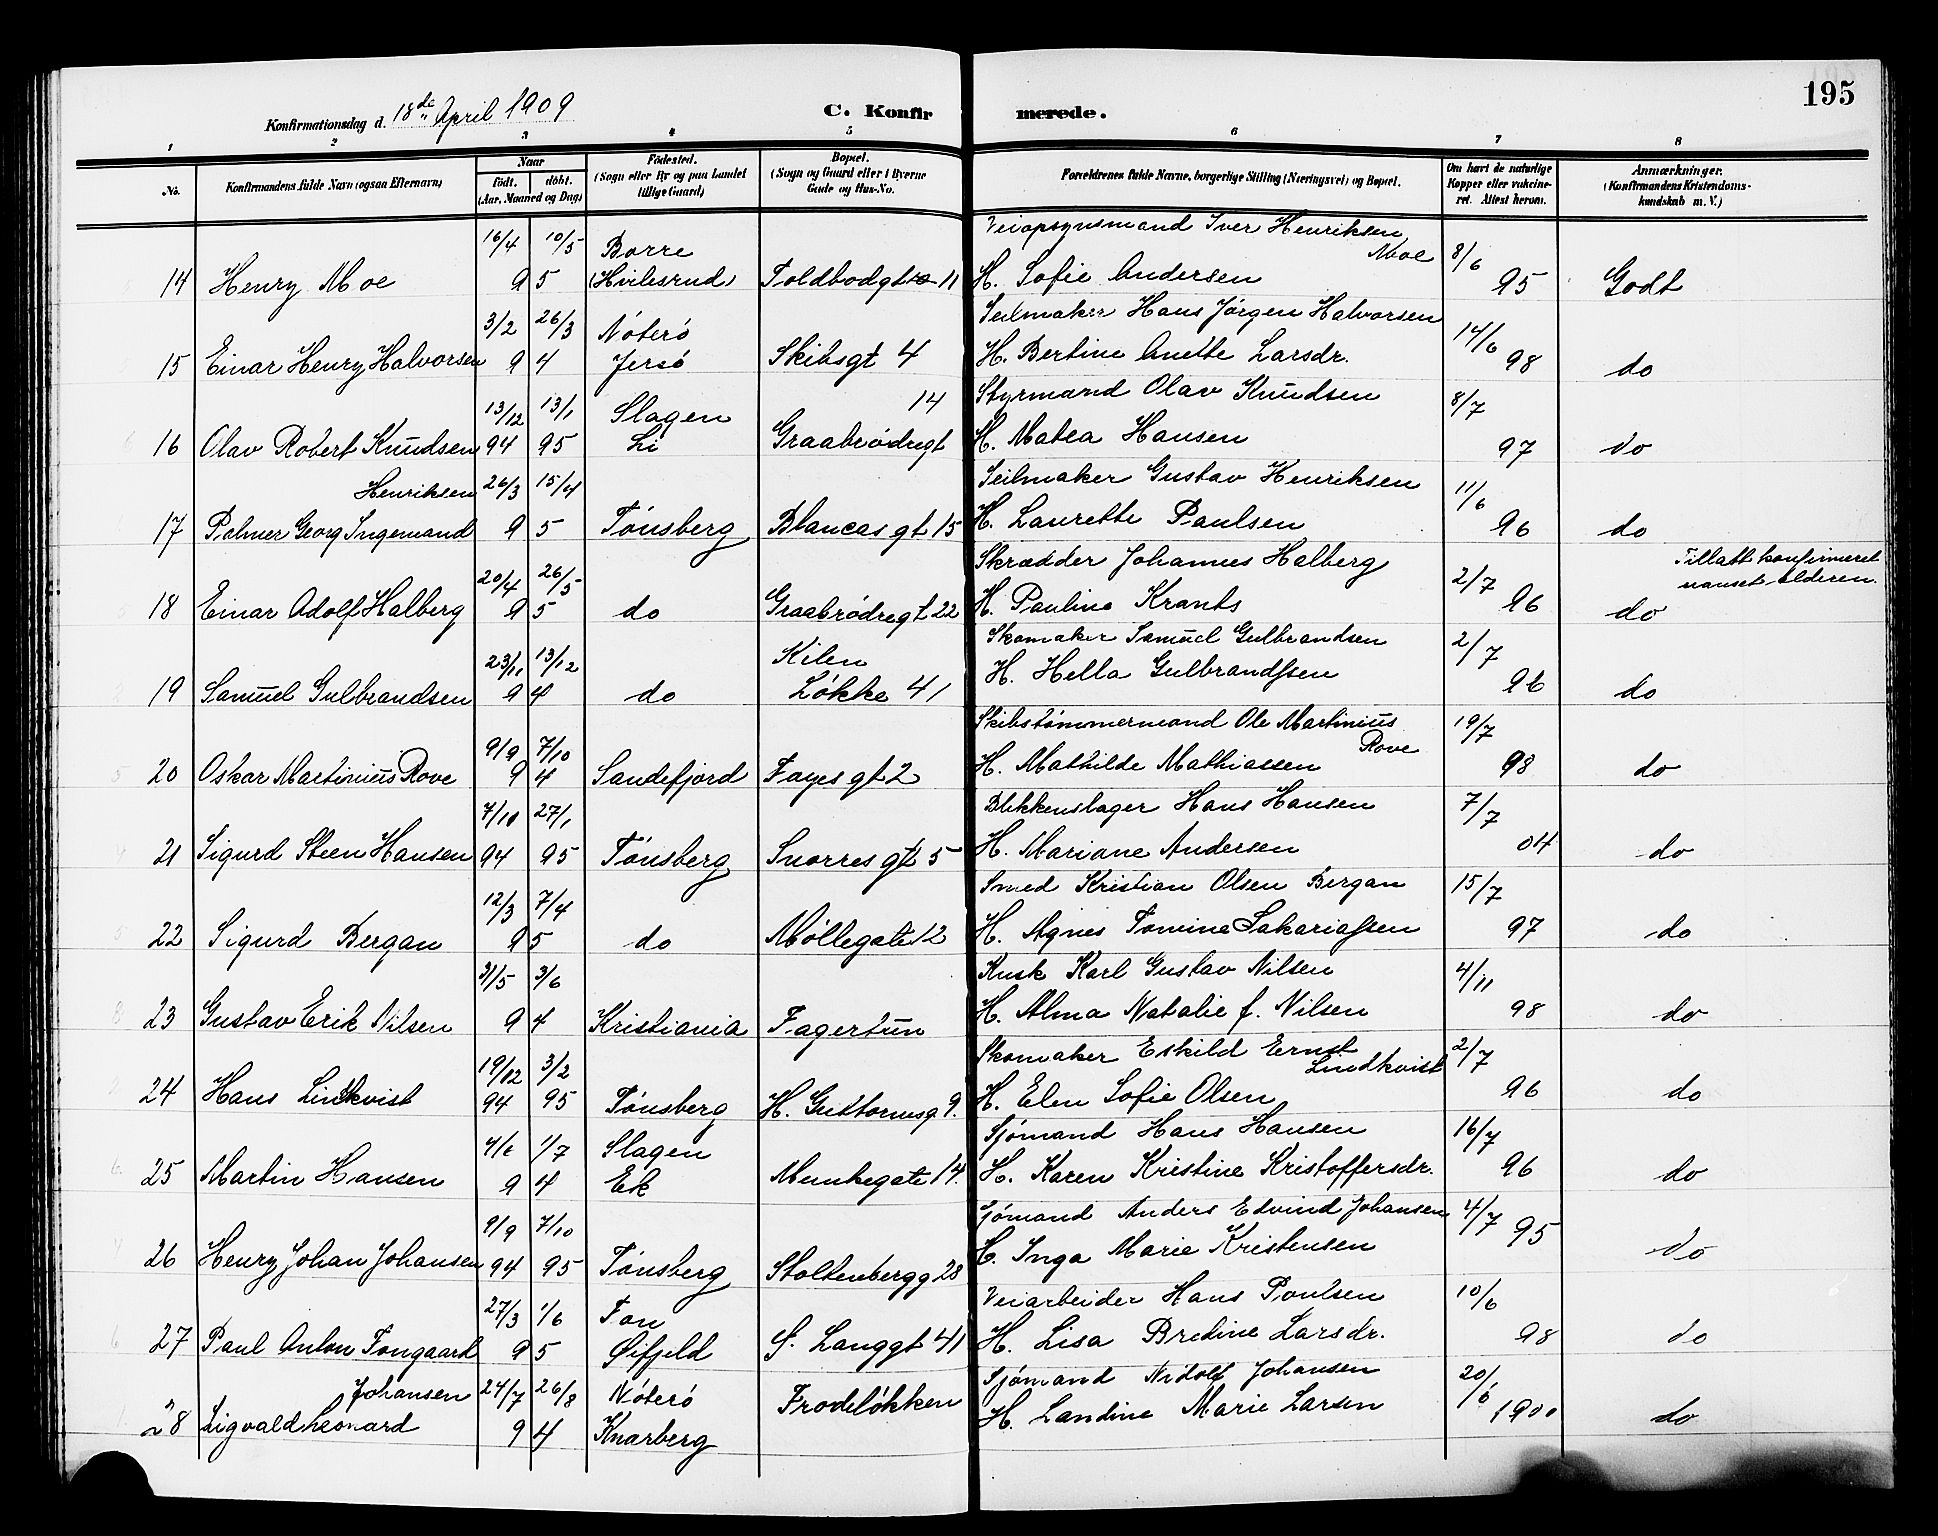 195
Konfirmationsdag d. 18de April 1909 C. Konfirmerede.
1 2 3 4 5 6 7 8
No. Konfirmandens fulde Navn (ogsaa Efternavn). Naar født. døbt. (Aar, Maaned og Dag) Fødested. (Sogn eller By og paa Landet tillige Gaard) Bopæl. (Sogn og Gaard eller i Byerne Gade og Hus-No. Forældrenes fulde Navne, borgerlige Stilling (Næringsvei) og Bopæl. Om havt de naturlige Kopper eller vakcineret. Attest herom. Anmærkninger. (Konfirmandens Kristendomskundskab m. V.)
16/4 10/5 Borre Veiopsynsmand Iver Henriksen Moe 8/6
14 Henry Moe 9 5 (Hvilesrud) Toldbodgt 11 H. Sofie Andersen 95 Godt
3/2 26/3 Nøterø Seilmaker Hans Jørgen Halvorsen 14/6
15 Einar Henry Halvorsen 9 4 Jersø Skibsgt 4 H. Bertine Anette Larsdr. 98 do
13/12 13/1 Slagen 14 Styrmand Olav Knudsen 8/7
16 Olav Robert Knudsen 94 95 Li Graabrødregt H. Matea Hansen 97 do
Henriksen 26/3 15/4 Seilmaker Gustav Henriksen 11/6
17 Palmer Georg Ingemand 9 5 Tønsberg Blancas gt 15 H. Laurette Paulsen 96 do
20/4 26/5 Skrædder Johannes Halberg 2/7 Tillatt konfirmeret uanset alderen.
18 Einar Adolf Halberg 9 5 do Graabrødregt 22 H. Pauline Krants 96 do
23/11 13/12 Kilen Skomaker Samuel Gulbrandsen 2/7
19 Samuel Gulbrandsen 9 4 do Løkke 41 H. Hella Gulbrandsen 96 do
9/9 7/10 Skibstømmermand Ole Martinius Rove 19/7
20 Oskar Martinius Rove 9 4 Sandefjord Fayes gt 2 H. Mathilde Mathiassen 98 do
7/10 27/1 Blikkenslager Hans Hansen 7/7
21 Sigurd Steen Hansen 94 95 Tønsberg Snorres gt 5 H. Mariane Andersen 04 do
12/3 7/4 Smed Kristian Olsen Bergan 15/7
22 Sigurd Bergan 9 5 do Møllegate 12 H. Agnes Tomine Sakariassen 97 do
31/5 3/6 Kusk Karl Gustav Nilsen 4/11
23 Gustav Erik Nilsen 9 4 Kristiania Fagertun H. Alma Natalie f. Nilsen 98 do
19/12 3/2 Skomaker Eskild Ernst Lindkvist 2/7
24 Hans Lindkvist 94 95 Tønsberg H. Guttormsg 9. H. Elen Sofie Olsen 96 do
4/6 1/7 Slagen Sjømand Hans Hansen 16/7
25 Martin Hansen 9 4 Ek Munkegate 14. H. Karen Kristine Kristoffersdr. 96 do
9/9 7/10 Sjømand Anders Edvind Johansen 4/7
26 Henry Johan Johansen 94 95 Tønsberg Stoltenbergg 28 H. Inga Marie Kristensen 95 do
27/3 1/6 Fon Veiarbeider Hans Poulsen 10/6
27 Paul Anton Fongaard 9 5 Øifjeld S. Langgt 41 H. Lisa Bredine Larsdr. 98 do
Johansen 24/7 26/8 Nøterø Sjømand Nidolf Johansen 20/6
28 Sigvald Leonard 9 4 Knarberg Frodeløkken H. Landine Marie Larsen 1900 do